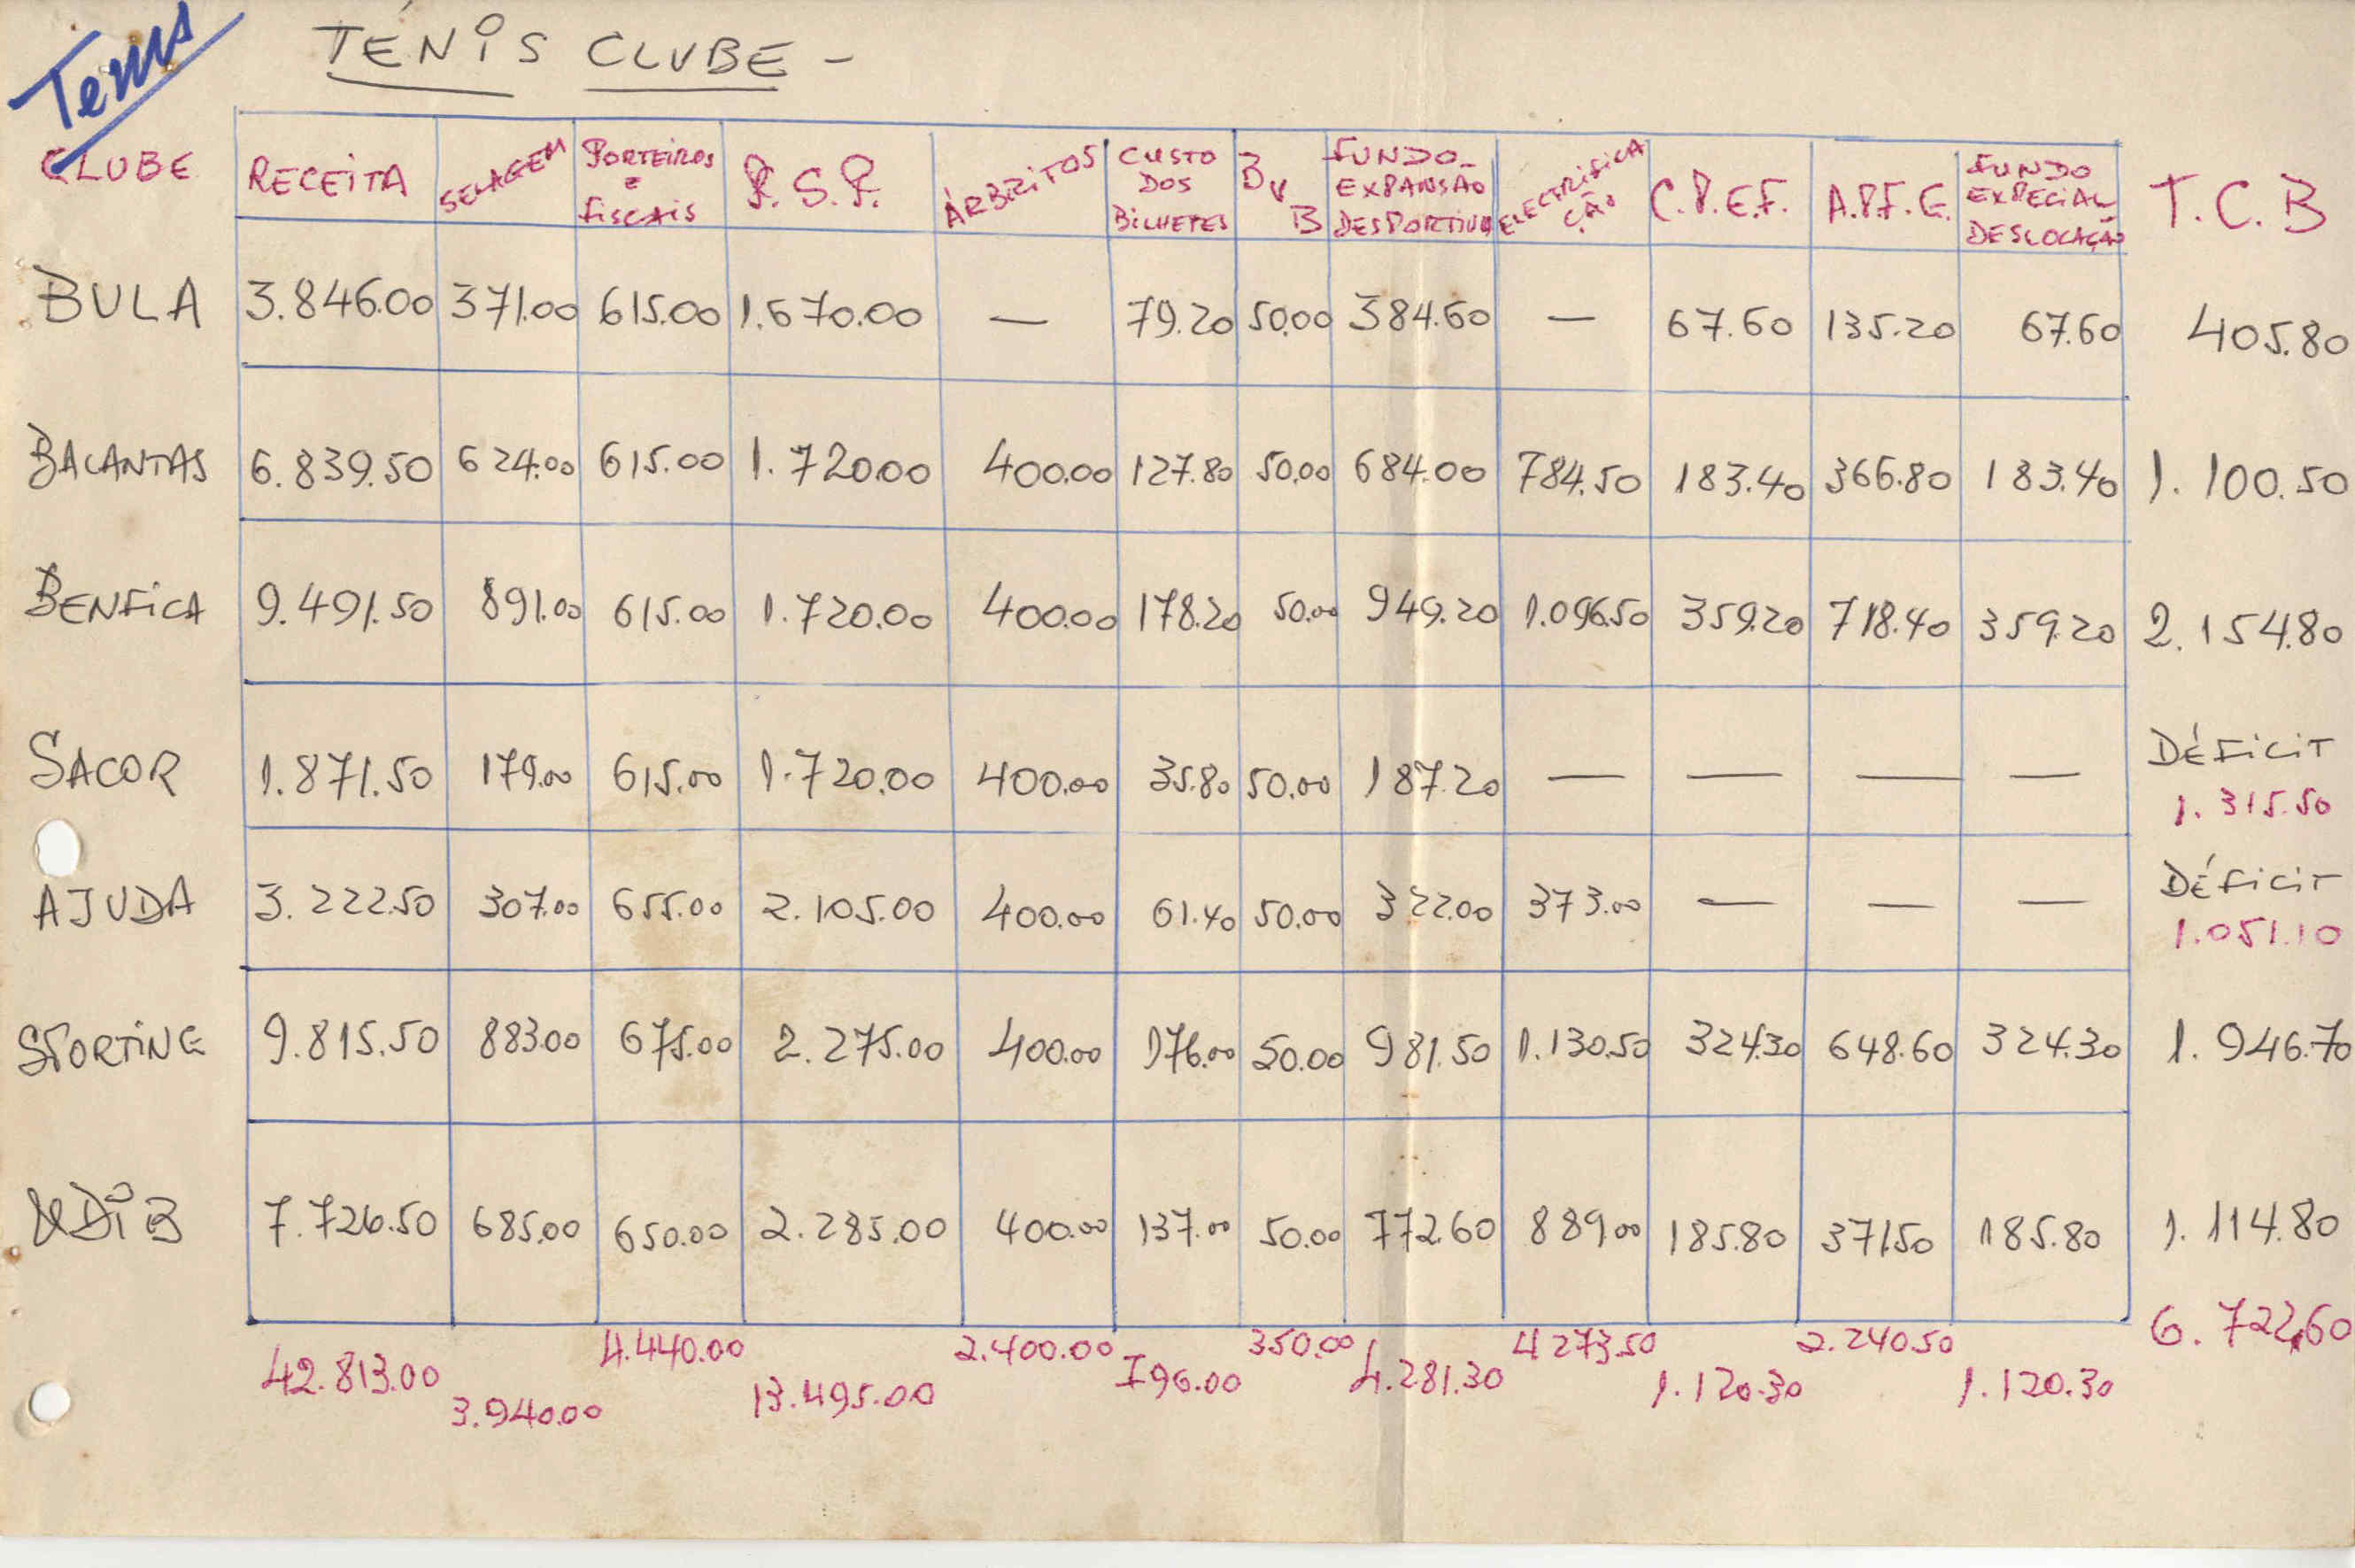 Tenis
TÉNIS CLUBE -
CLUBE RECEITA SELAGEM PORTEIROS e FISCAIS P.S.P. ÁRBRITOS CUSTO DOS BILHETES B v B FUNDO EXPANSÃO DESPORTIVO ELECTRIFICAÇÃO C.P.E.F. A.P.F.G. FUNDO EXPECIAL DESLOCAÇÃO T.C.B
BULA 3.846.00 371.00 615.00 1.670.00 — 79.20 50.00 384.60 — 67.60 135.20 67.60 405.80
BALANTAS 6.839.50 624.00 615.00 1.720.00 400.00 127.80 50.00 684.00 784.50 183.40 366.80 183.40 1.100.50
BENFICA 9.491.50 891.00 615.00 1.720.00 400.00 178.20 50.00 949.20 1.096.50 359.20 718.40 359.20 2.154.80
SACOR 1.871.50 179.00 615.00 1.720.00 400.00 35.80 50.00 187.20 — — — — DÉFICIT
1.315.50
AJUDA 3.222.50 307.00 655.00 2.105.00 400.00 61.40 50.00 322.00 373.00 — — — DÉFICIT
1.051.10
SPORTING 9.815.50 883.00 675.00 2.275.00 400.00 176.00 50.00 981.50 1.130.50 324.30 648.60 324.30 1.946.70
UDIB 7.726.50 685.00 650.00 2.285.00 400.00 137.00 50.00 772.60 889.00 185.80 371.50 185.80 1.114.80
42.813.00 3.940.00 4.440.00 13.495.00 2.400.00 796.00 350.00 4.281.30 4273.50 1.120.30 2.240.50 1.120.30 6.722,60